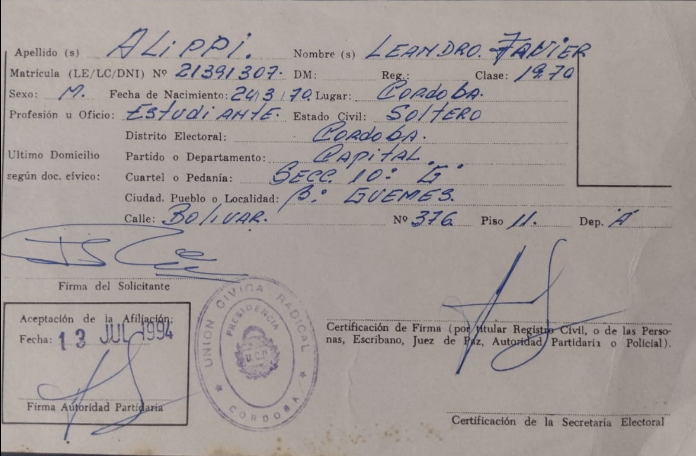 Apellido (s) ALIPPI. Nombre (s) LEANDRO. JAVIER
Matrícula (LE/LC/DNI) Nº 21391307. DM: Reg.: Clase: 1970
Sexo: M. Fecha de Nacimiento: 24/3/70. Lugar: Cordoba.
Profesión u Oficio: Estudiante. Estado Civil: Soltero
Distrito Electoral: Cordoba.
Ultimo Domicilio Partido o Departamento: Capital.
según doc. cívico: Cuartel o Pedanía: Secc. 10º G.
Ciudad, Pueblo o Localidad: Bº GUEMES.
Calle: Bolivar. Nº 376 Piso 11. Dep. A
Firma del Solicitante
Aceptación de la Afiliación:
Fecha: 13 JUL 1994
Firma Autoridad Partidaria
UNION CIVICA RADICAL
PRESIDENCIA
U.C.R.
CORDOBA
Certificación de Firma (por titular Registro Civil, o de las Perso-
nas, Escribano, Juez de Paz, Autoridad Partidaria o Policial).
Certificación de la Secretaría Electoral